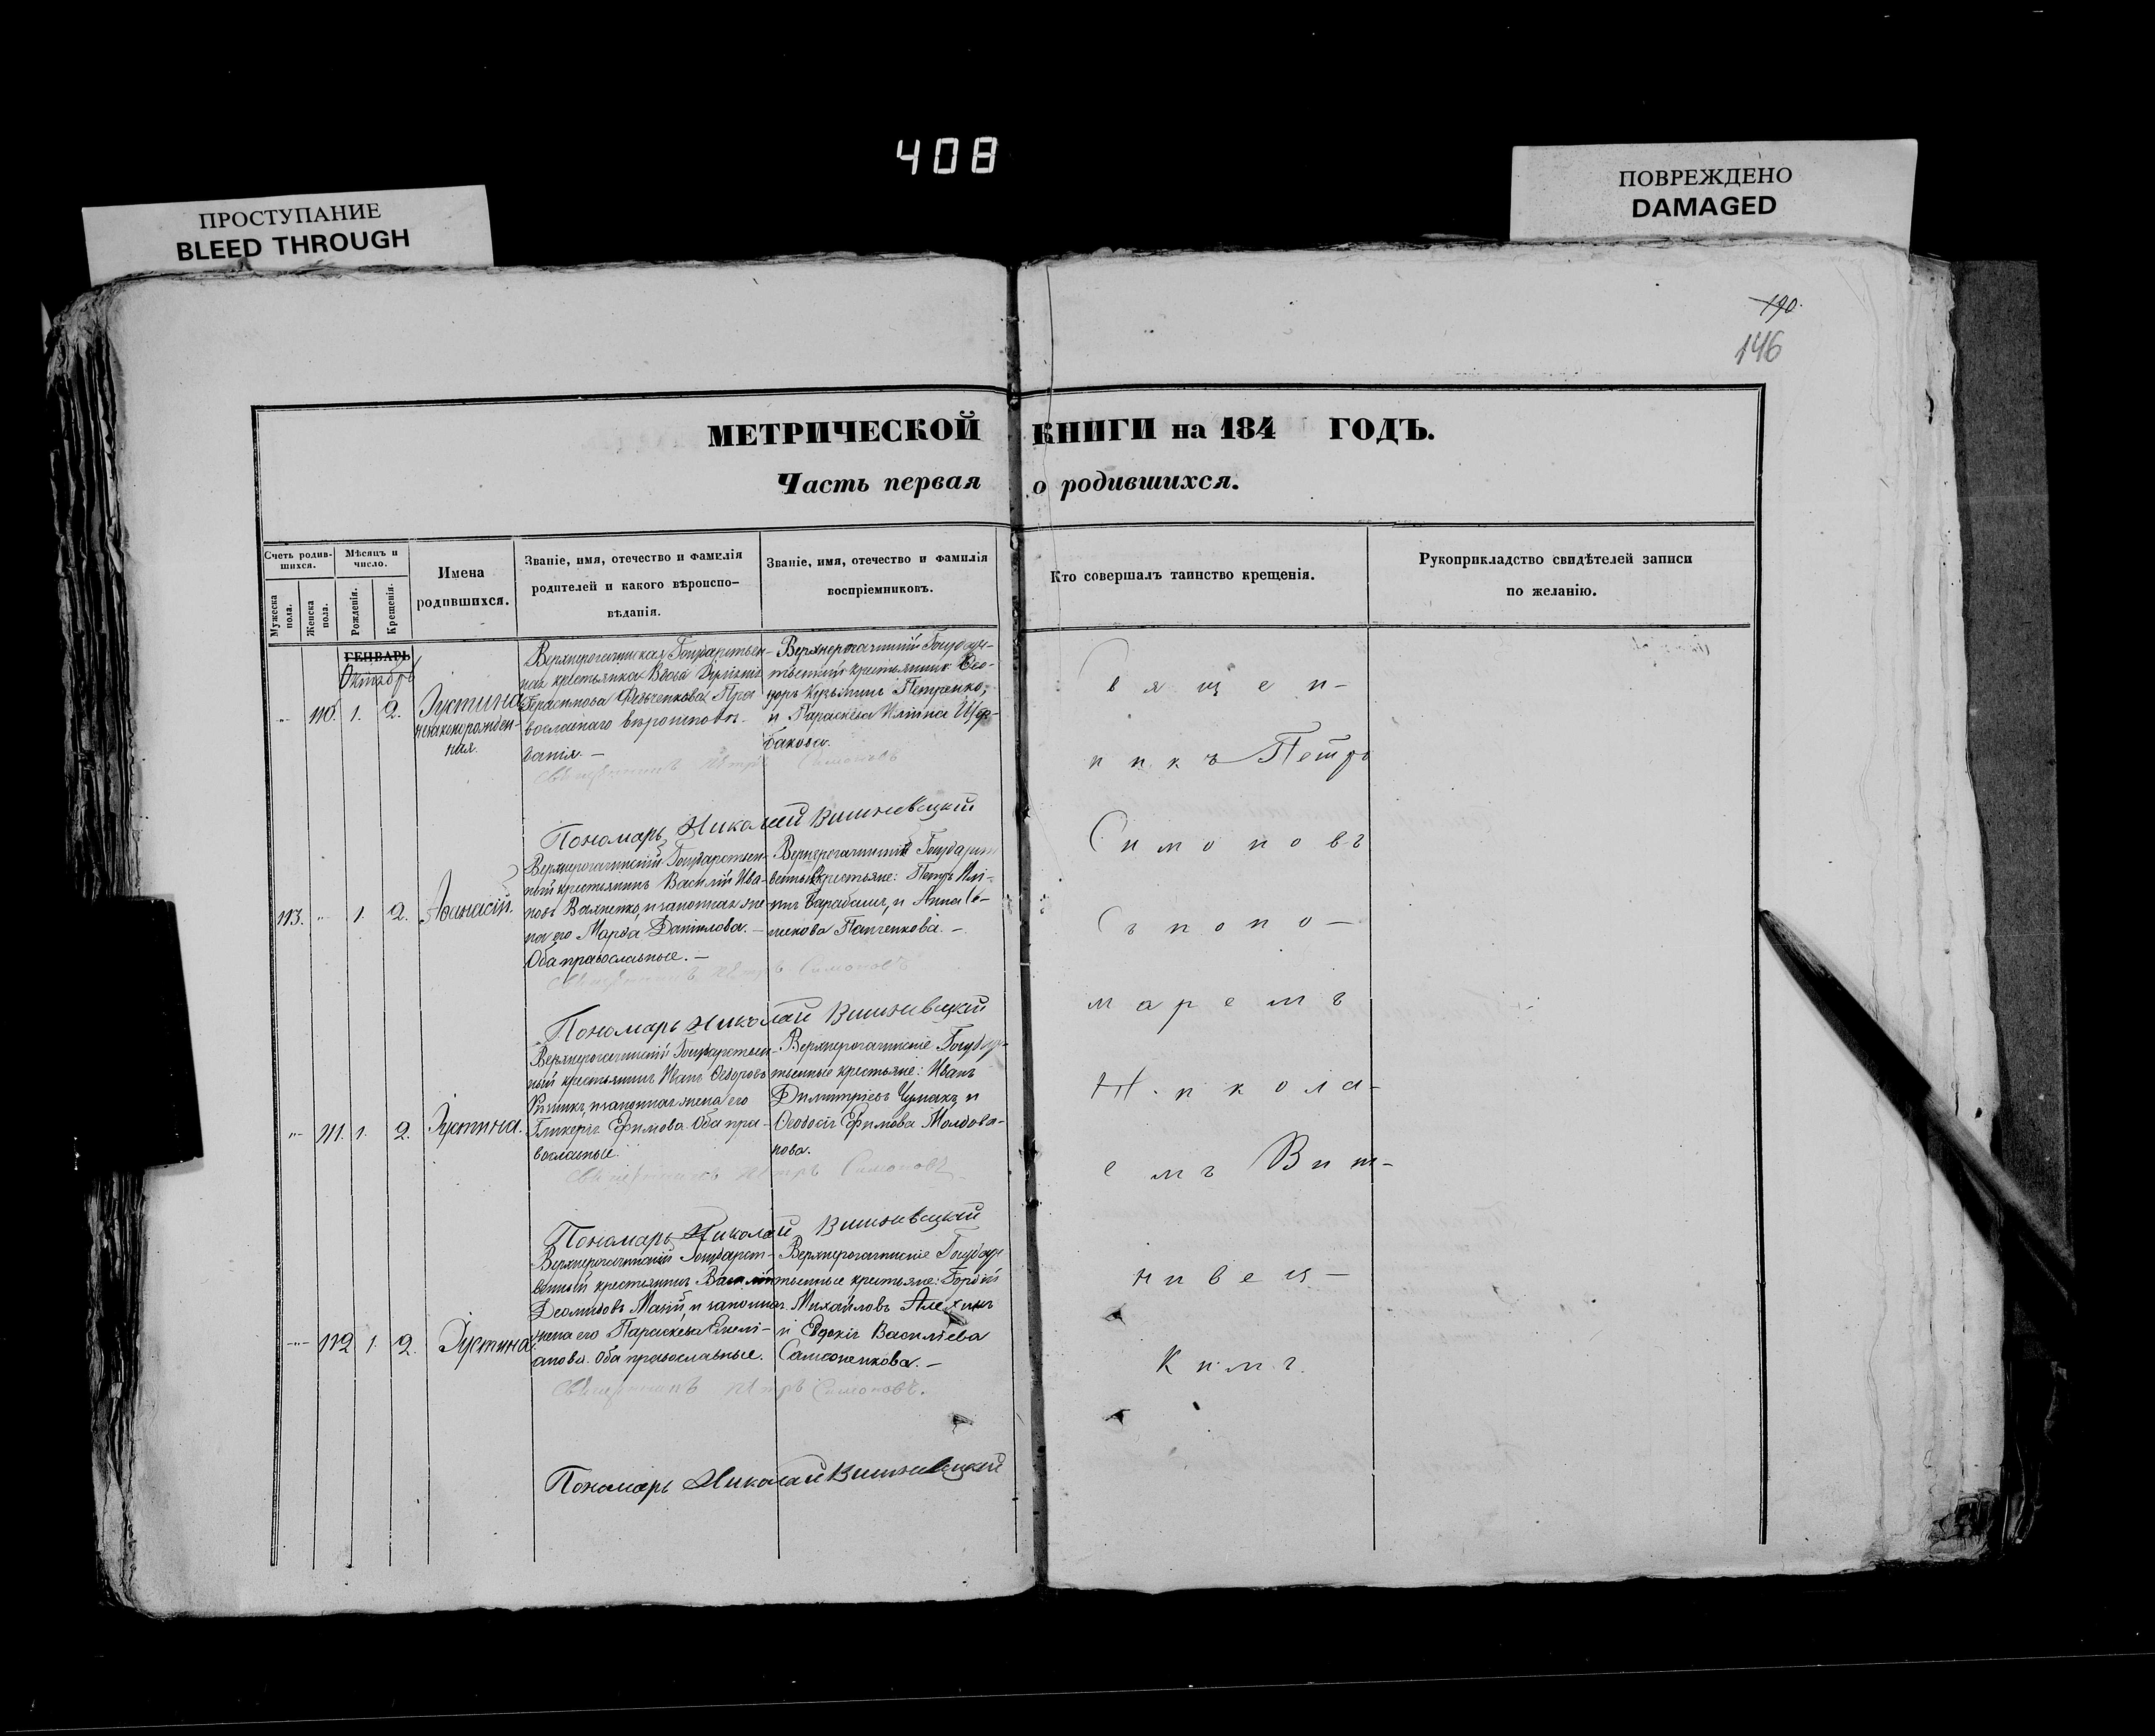 408
ПРОСТУПАНИЕ
BLEED THROUGH
ПОВРЕЖДЕНО
DAMAGED
190.
146
МЕТРИЧЕСКОЙ КНИГИ на 184 ГОДЪ.
Часть первая о родившихся.
Счетъ родив-
шихся.
Мужеска
пола.
Женска
пола.
Мѣсяцъ и
число.
Рожденія.
Крещенія.
Имена
родившихся.
Званіе, имя, отечество и фамилія
родителей и какого вѣроиспо-
вѣданія.
Званіе, имя, отечество и фамилія
воспріемниковъ.
Кто совершалъ таинство крещенія.
Рукоприкладство свидѣтелей записи
по желанію.
ГЕНВАРЬ
Октябрь
110. 1. 2.
Іустина
незаконорожден-
ная.
Верхнерогачинская Государствен-
ная крестьянка
Герасимова Пра-
вославнаго вѣроисповѣ-
данія. —
Верхнерогачинскій Государ-
твенный крестьянинъ Ѳео-
доръ Кузьминъ Петренко,
и Параскева Иліина Щер-
бакова.
Священникъ Петръ Симоновъ
Пономарь Николай Вишневецкій
113. 1. 2.
Аѳанасій.
Верхнерогачинскій Государствен-
ный крестьянинъ Василій Ива-
новъ и законная же-
на его Марѳа Даніилова. —
Оба православные. —
Верхнерогачинскіе Государст-
венные крестьяне: Петръ Илі-
инъ Барабашъ, и Анна Се-
менова Панченкова. —
Священникъ Петръ Симоновъ
Пономарь Николай Вишневецкій
111. 1. 2.
Іустина.
Верхнерогачинскій Государствен-
ный крестьянинъ Иванъ Ѳедоровъ
и законная жена его
Гликерія Ефимова. Оба пра-
вославные.
Верхнерогачинскіе Государ-
твенные крестьяне: Иванъ
Димитріевъ Чумакъ и
Ѳеодосія Ефимова Молдова-
нова.
Священникъ Петръ Симоновъ
Пономарь Николай Вишневецкій
112 1. 2.
Іустина.
Верхнерогачинскій Государст-
венный крестьянинъ Василій
Деомидовъ и законная
жена его Параскева Емелі-
анова. Оба православные.
Верхнерогачинскіе Государ-
твенные крестьяне: Гордій
Михайловъ
и Евдокія Василіева
Самсоненкова. —
Священникъ Петръ Симоновъ.
Пономарь Николай Вишневецкій
Священ-
никъ Петръ
Симоновъ
съ поно-
маремъ
Никола-
емъ Виш-
невец-
кимъ.